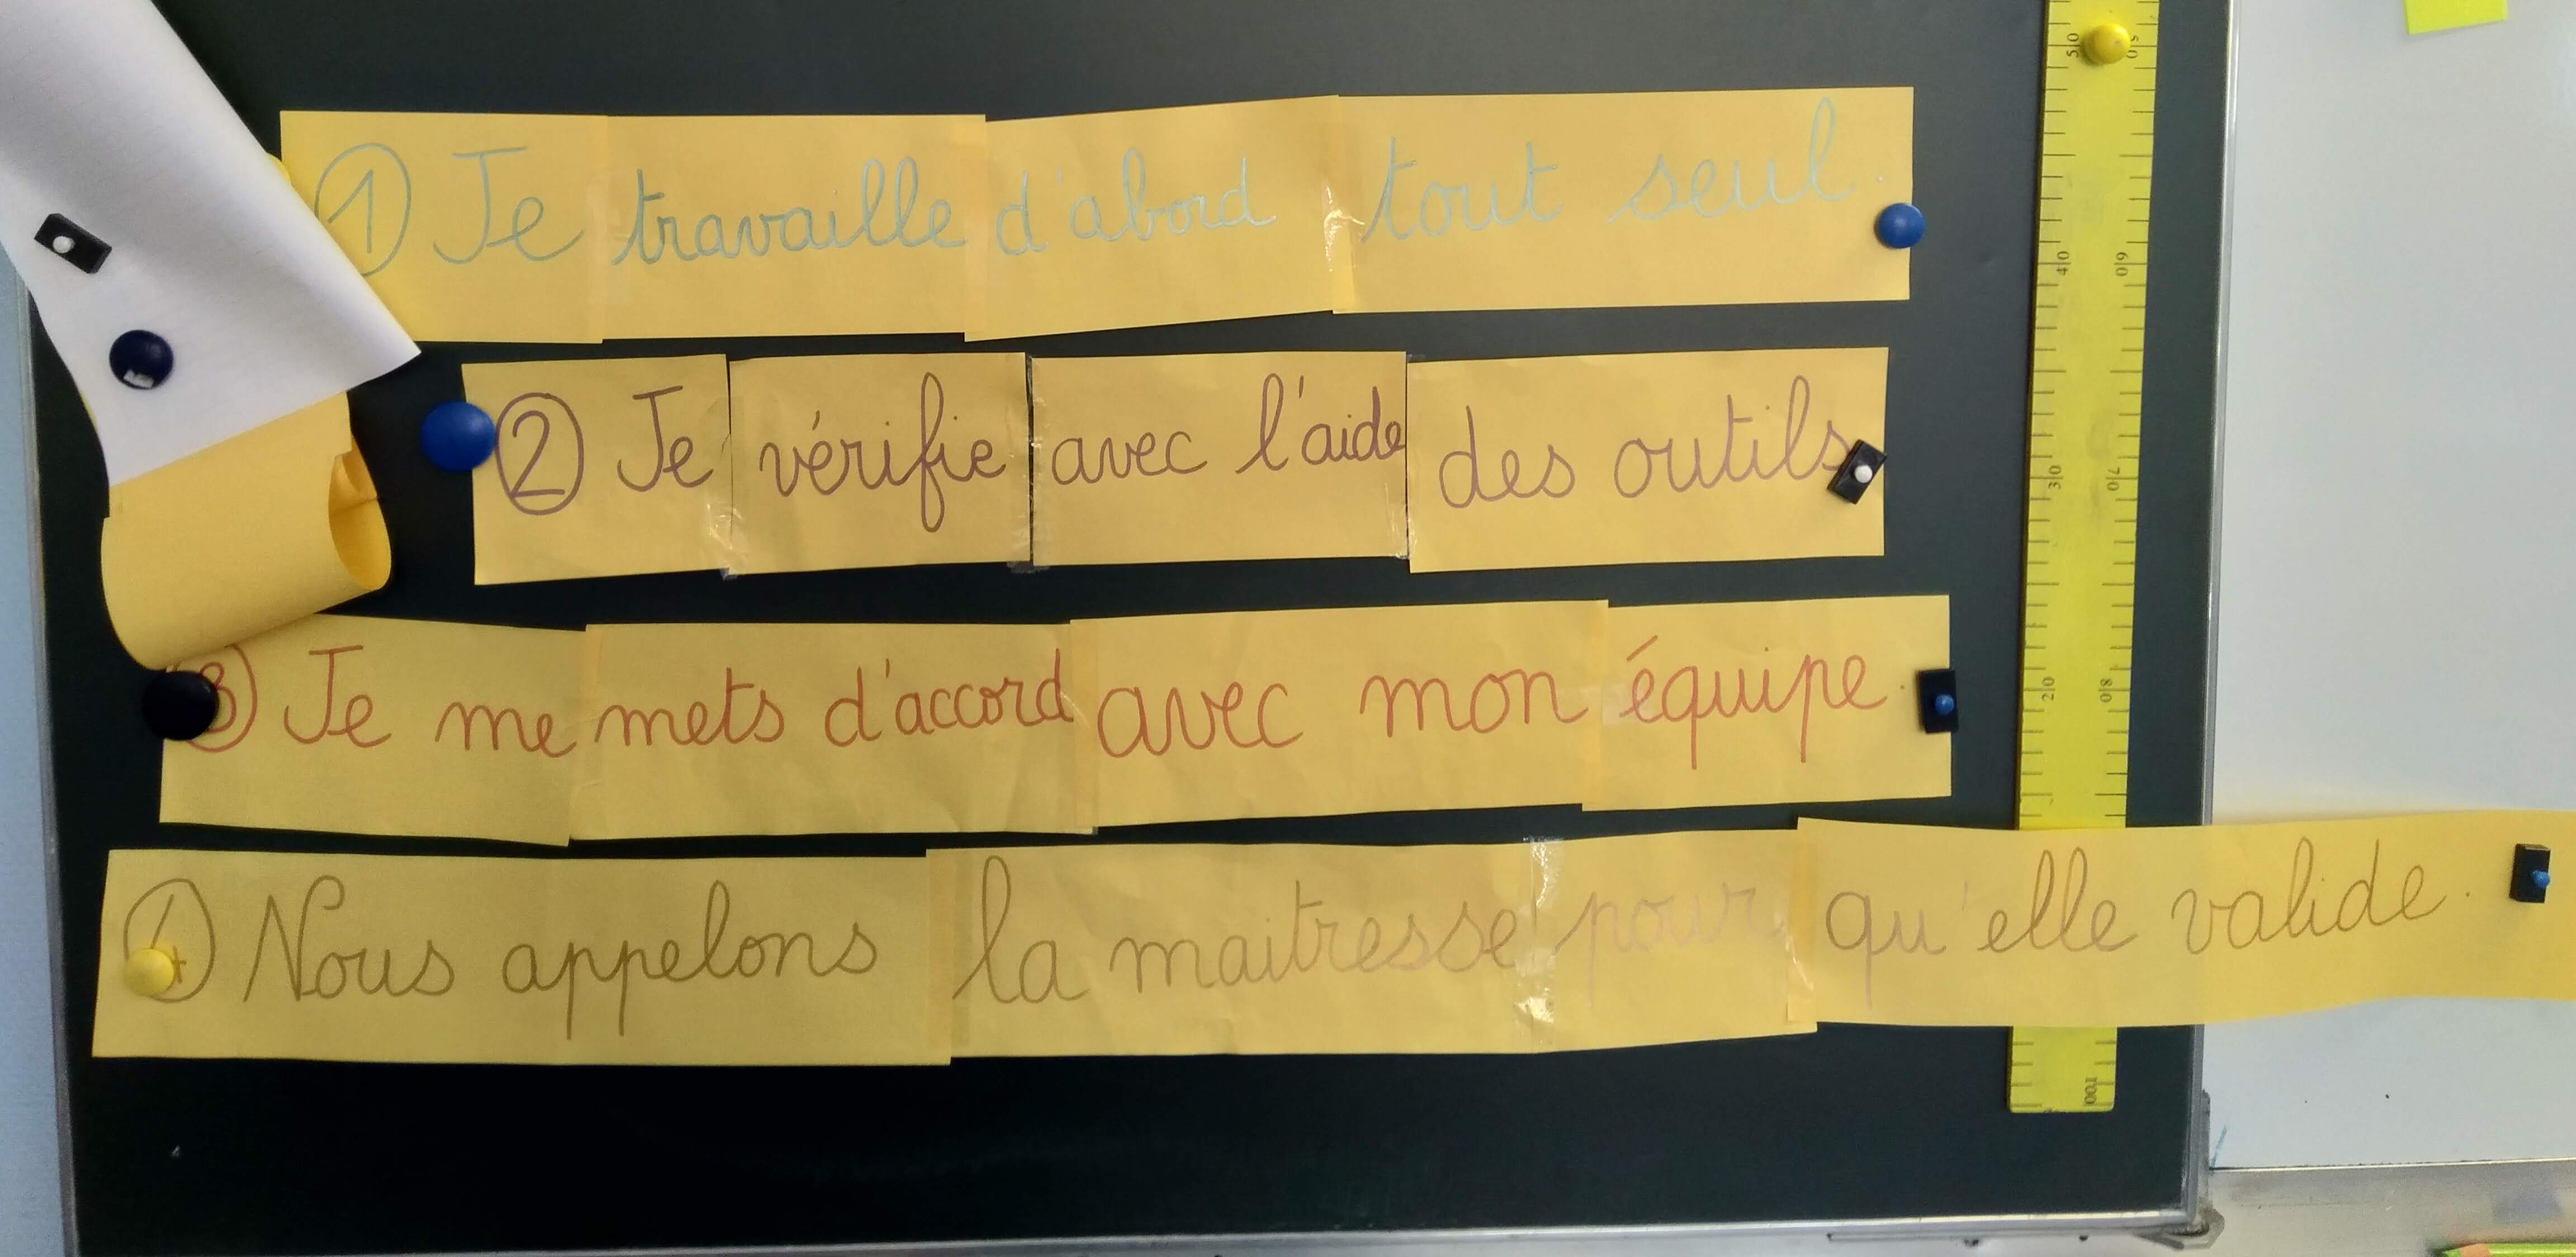 ① Je travaille d'abord tout seul.
② Je vérifie avec l'aide des outils
③ Je me mets d'accord avec mon équipe.
④ Nous appelons la maitresse pour qu'elle valide.
50 50
40 60
30 70
20 80
100